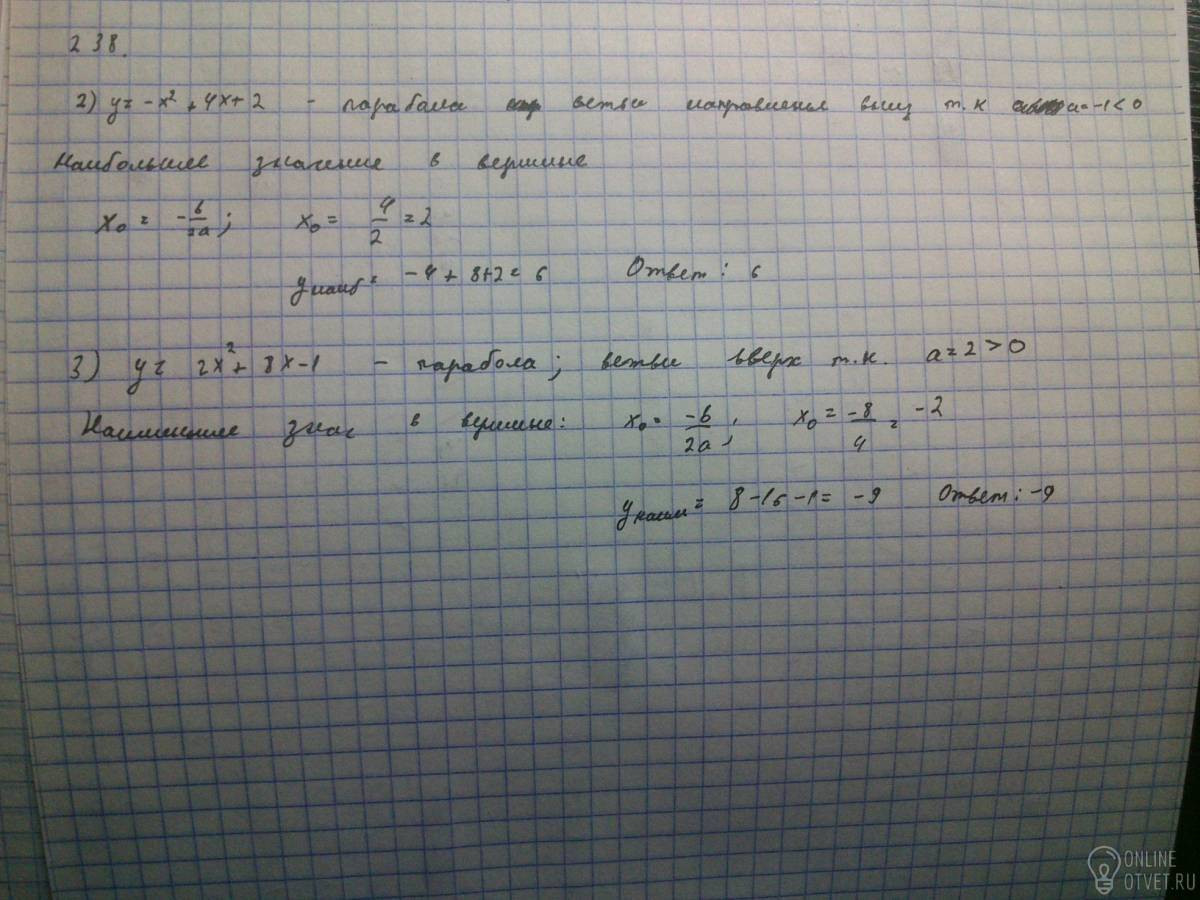 238.
2) y = -x² + 4x + 2 - парабола ветви направленыя вниз т.к a = -1 < 0
Наибольшее значение в вершине
x₀ = -b/2a ; x₀ = 4/2 = 2
y наиб = -4 + 8 + 2 = 6 Ответ: 6
3) y = 2x² + 8x - 1 - парабола; ветви вверх т.к. a = 2 > 0
Наименьшее знач в вершине: x₀ = -b/2a ; x₀ = -8/4 = -2
y наим = 8 - 16 - 1 = -9 Ответ: -9
ONLINE
OTVET.RU